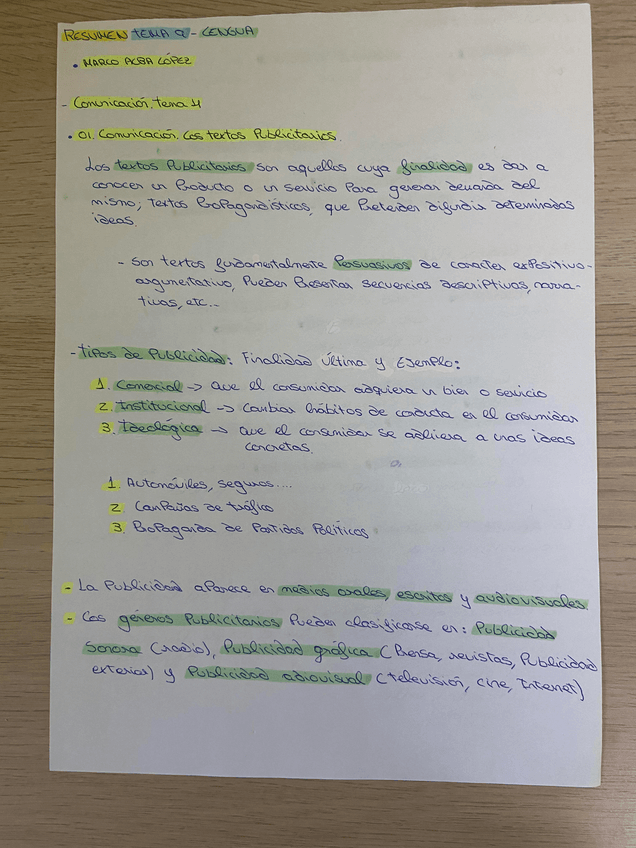 RESUMEN TEMA 9 - LENGUA
• MARCO ALBA LÓPEZ
- Comunicación. Tema 4
• 01. Comunicación. Los textos Publicitarios.
Los textos Publicitarios son aquellos cuya finalidad es dar a
conocer un Producto o un servicio Para generar demanda del
mismo; Textos ProPagandísticos, que Pretenden difundir determinadas
ideas.
- Son textos fundamentalmente Persuasivos de caracter exPositivo-
argumentativo, Pueden Presentar secuencias descriPtivas, narra-
tivas, etc...
- TiPos de Publicidad: Finalidad Última y Ejemplo:
1. Comercial -> Que el consumidor adquiera un bien o servicio
2. Institucional -> Cambiar hábitos de conducta en el consumidor
3. Ideológica -> Que el consumidor se adhiera a unas ideas
concretas.
1. Automóviles, seguros....
2. CamPañas de tráfico
3. ProPaganda de Partidos Políticos
- La Publicidad aParece en medios orales, escritos y audiovisuales
- Los géneros Publicitarios Pueden clasificarse en: Publicidad
Sonora (radio), Publicidad gráfica (Prensa, revistas, Publicidad
exterior) y Publicidad adiovisual (Televisión, cine, Internet)